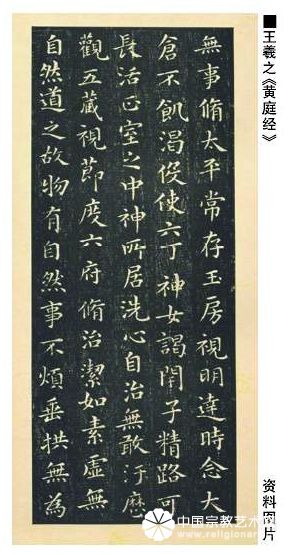 ■王羲之《黄庭经》
無事脩太平常存玉房視明達時念大
倉不飢渴役使六丁神女謁閇子精路可
長活正室之中神所居洗心自治無敢汙歷
觀五藏視節度六府脩治潔如素虛無
自然道之故物有自然事不煩垂拱無為
资料图片
中国宗教艺术网